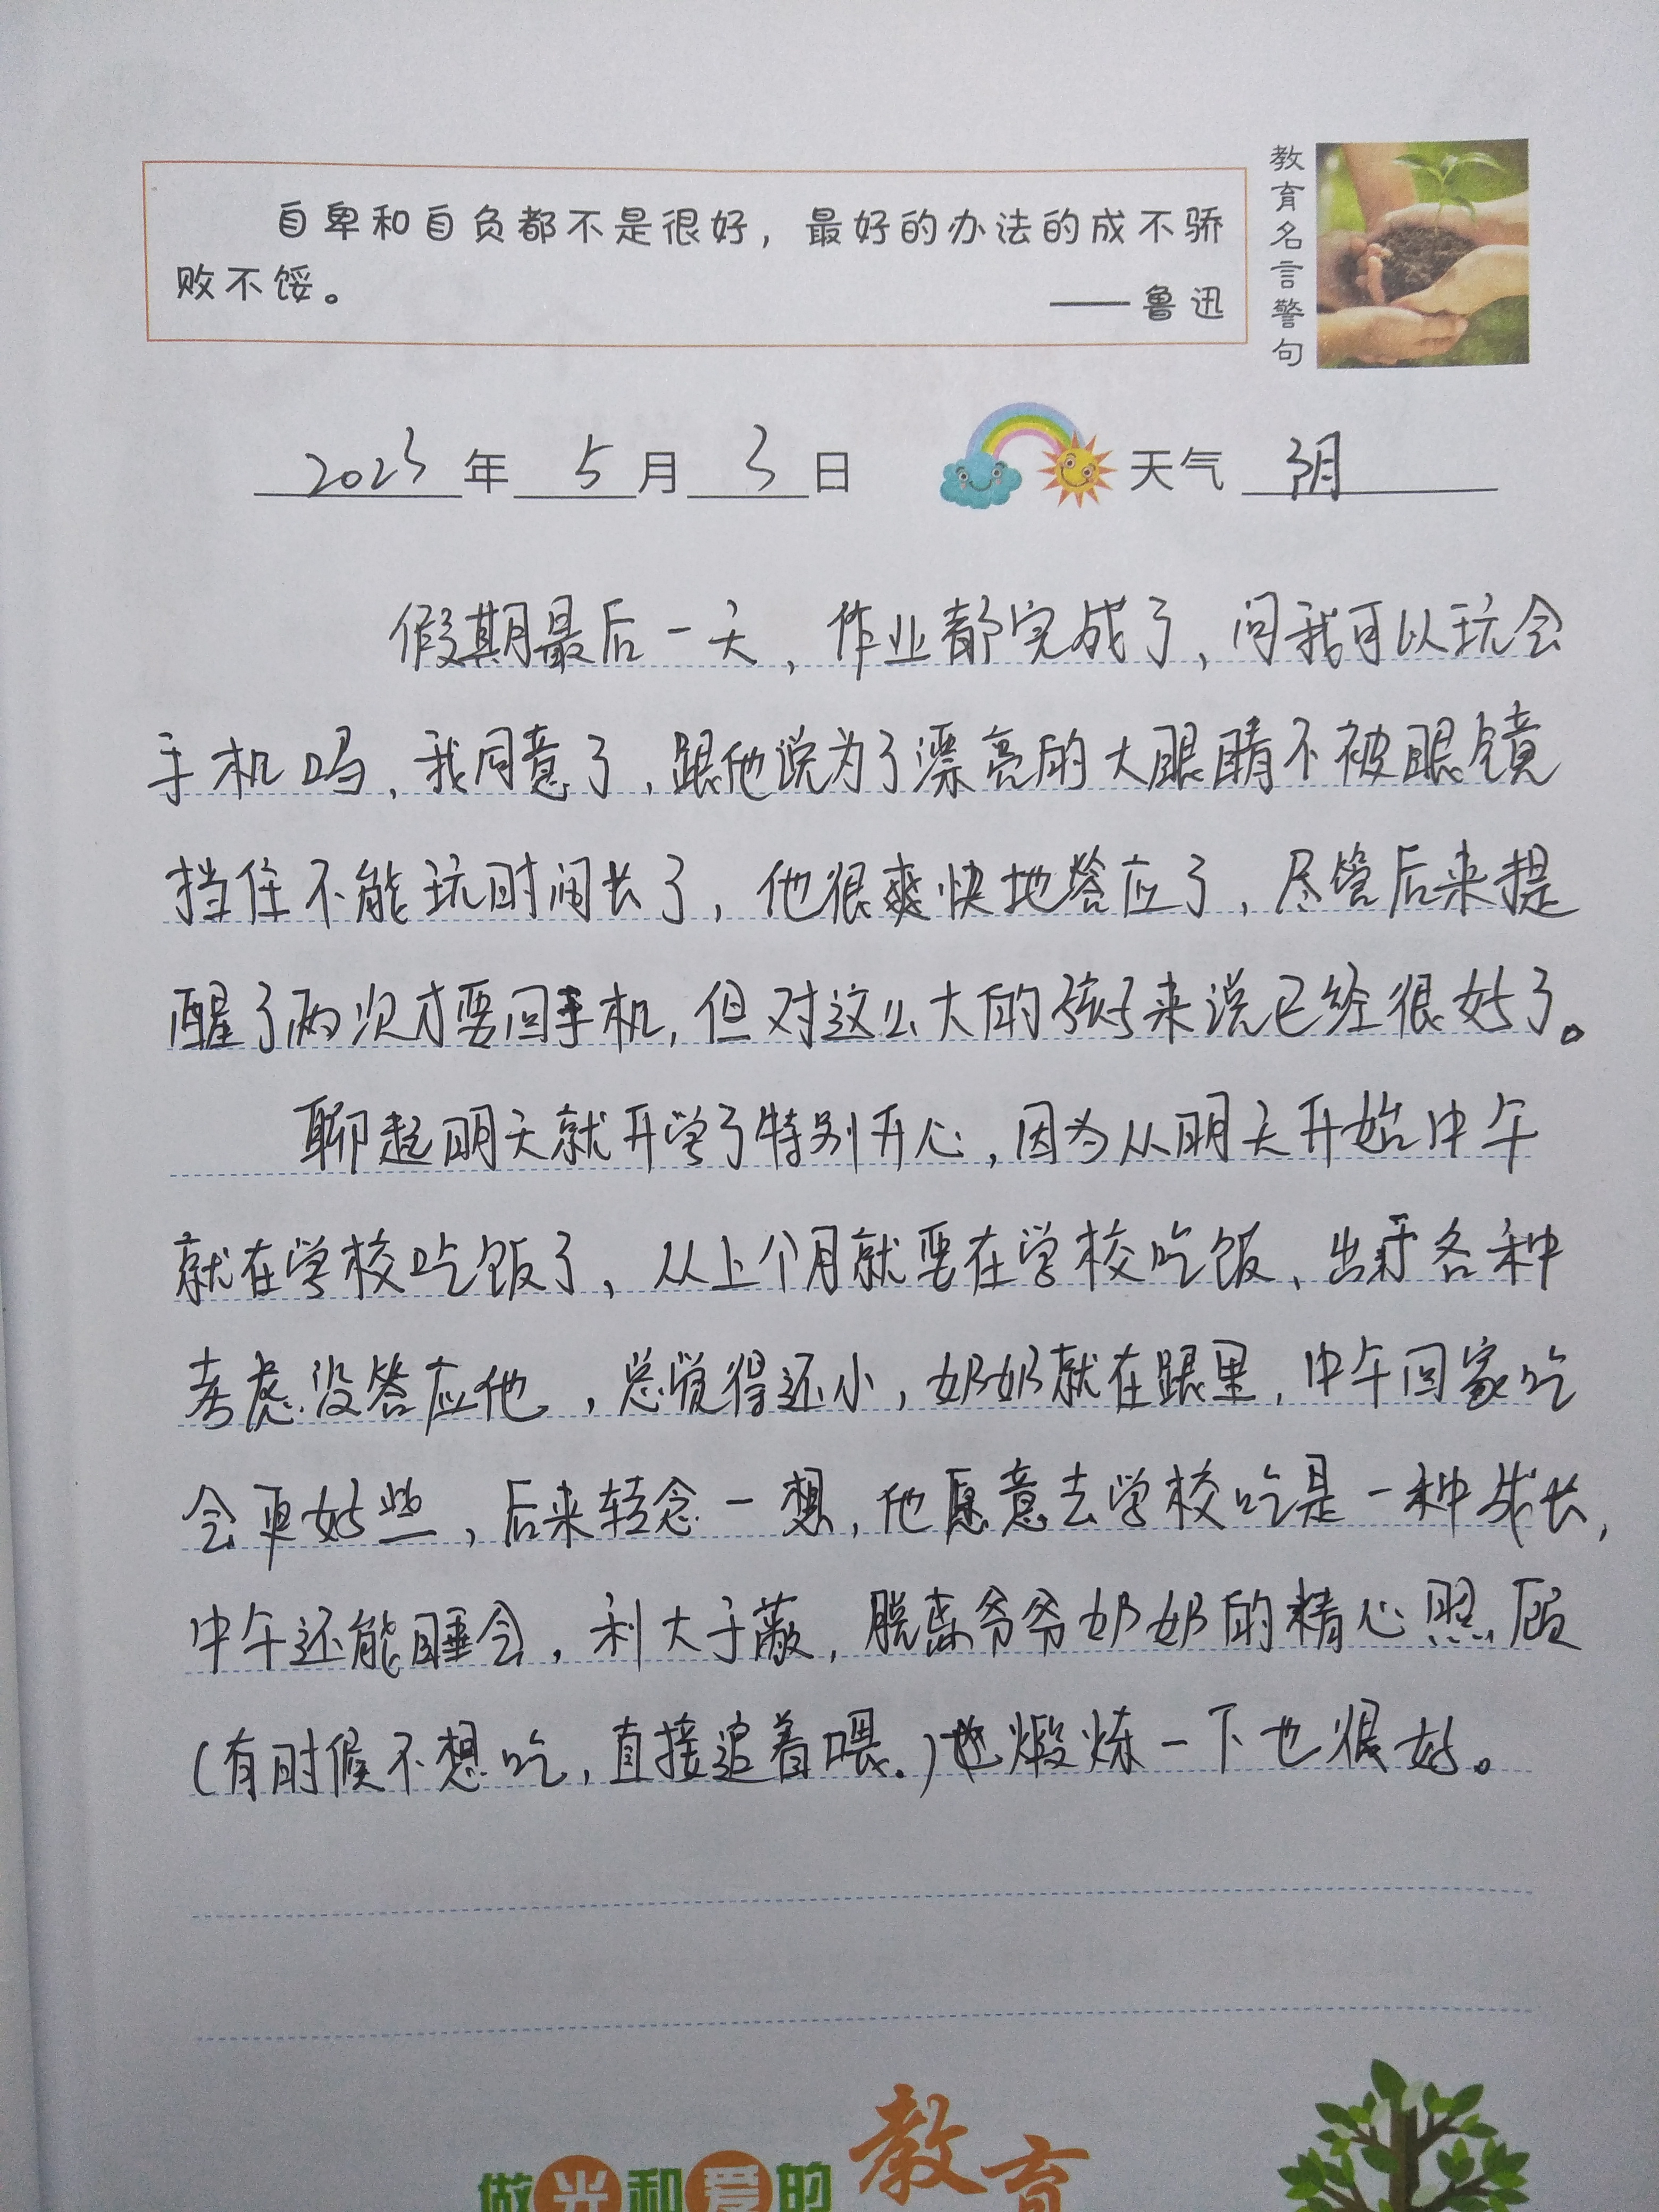 自卑和自负都不是很好，最好的办法的成不骄
败不馁。
——鲁迅
教育名言警句
2023年 5月 3日 天气 阴
假期最后一天，作业都完成了，问我可以玩会
手机吗，我同意了，跟他说为了漂亮的大眼睛不被眼镜
挡住不能玩时间长了，他很爽快地答应了，尽管后来提
醒了两次才要回手机，但对这么大的孩子来说已经很好了。
聊起明天就开学了特别开心，因为从明天开始中午
就在学校吃饭了，从上个月就要在学校吃饭、出于各种
考虑没答应他，总觉得还小，奶奶就在跟里，中午回家吃
会更好些，后来转念一想，他愿意去学校吃是一种成长，
中午还能睡会，利大于蔽，脱离爷爷奶奶的精心照顾
（有时候不想吃，直接追着喂.）他煅炼一下也很好。
做光和爱的教育